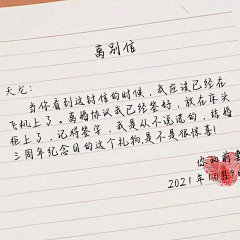 离别信
天龙:
当你看到这封信的时候,我应该已经在
飞机上了。离婚协议我已经签好,放在床头
柜上了,记得签字,我是从不说谎的,结婚
三周年纪念日的这个礼物,是不是很惊喜!
你的前妻
2021年10月9日